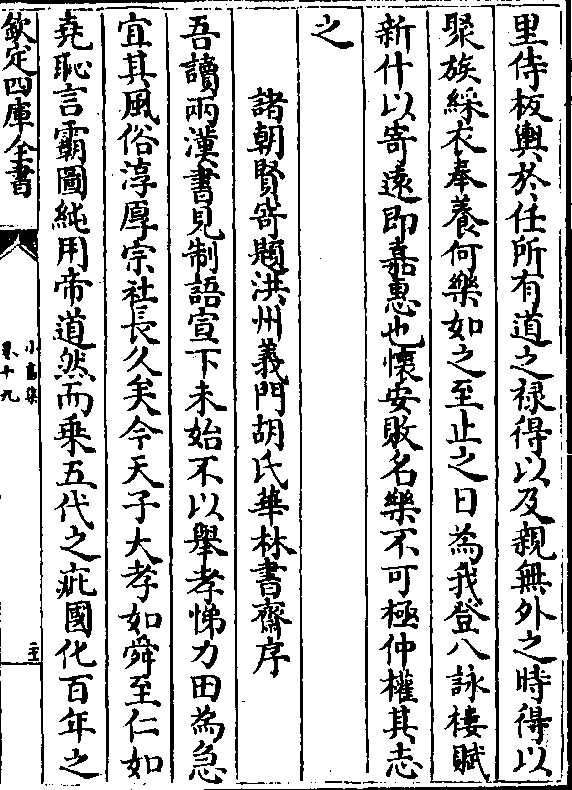 里侍板輿於任所有道之禄得以及親無外之時得以
聚族綵衣奉養何樂如之至止之日為我登八詠樓賦
新什以寄遠即嘉惠也懷安敗名樂不可極仲權其志
之
諸朝賢寄題洪州義門胡氏華林書齋序
吾讀兩漢書見制語宣下未始不以舉孝悌力田為急
宜其風俗淳厚宗社長久矣今天子大孝如舜至仁如
堯恥言霸圖純用帝道然而乗五代之疵國化百年之
欽定四庫全書
小畜集
卷十九